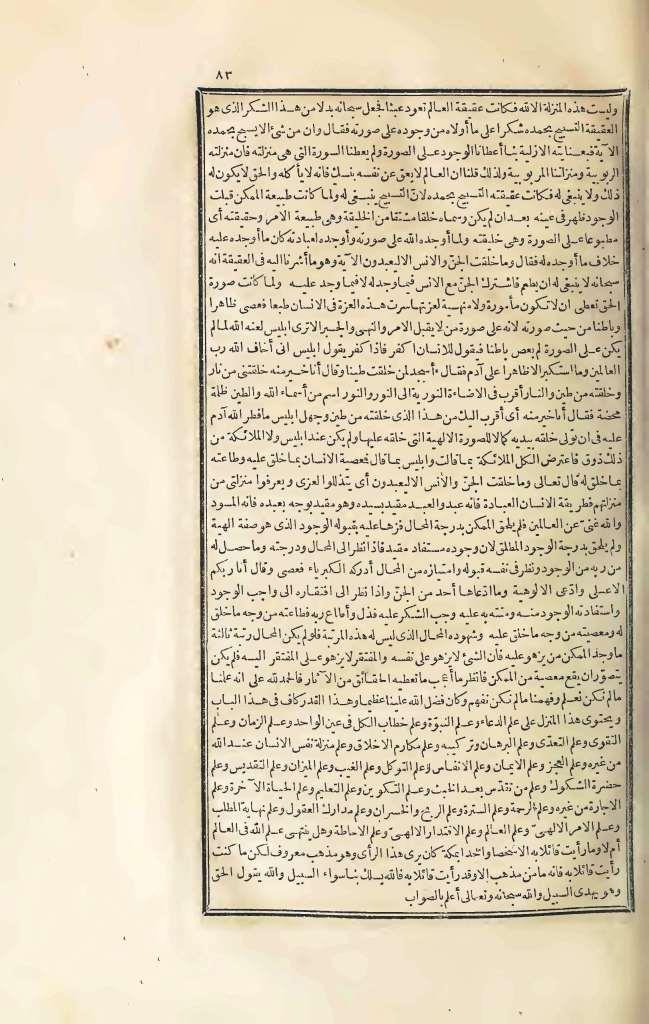 ٨٣
وليست هذه المنزلة الا لله فكانت عقيقة العالم تعود عبثا فجعل سبحانه بدلا من هذا الشكر الذى هو
العقيقة التسبيح بحمده شكرا على ما أولاه من وجوده على صورته فقال وان من شئ الا يسبح بحمده
الآية فبعنايته الازلية بنا أعطانا الوجود على الصورة ولم يعطنا السورة التى هى منزلته فان منزلته
الربوبية ومنزلتنا المربوبية ولذلك قلنا ان العالم لا يعق عن نفسه بنسك فانه لا يأكله والحق لا يكون له
ذلك ولا ينبغى له فكانت عقيقته التسبيح بحمده لان التسبيح ينبغى له ولما كانت طبيعة الممكن قبلت
الوجود فظهر فى عينه بعد ان لم يكن وسماه خلقا مشتقا من الخليقة وهى طبيعة الامر وحقيقته أى
مطبوعا على الصورة وهى خليقته ولما أوجده الله على صورته وأوجده لعبادته كان ما أوجده عليه
خلاف ما أوجده له فقال وما خلقت الجن والانس الا ليعبدون الآية وهو ما أشرنا اليه فى العقيقة انه
سبحانه لا ينبغى له ان يطعم فاشترك الجن مع الانس فيما وجد له لا فيما وجد عليه ولما كانت صورة
الحق تعطى ان لا تكون مأمورة ولا منهية لعزتها سرت هذه العزة فى الانسان طبعا فعصى ظاهرا
وباطنا من حيث صورته لانه على صورة من لا يقبل الامر والنهى والجبر الا ترى ابليس لعنه الله لما لم
يكن على الصورة لم يعص باطنا فيقول للانسان اكفر فاذا كفر يقول ابليس انى أخاف الله رب
العالمين وما استكبر الا ظاهرا على آدم فقال ءأسجد لمن خلقت طينا وقال أنا خير منه خلقتنى من نار
وخلقته من طين والنار أقرب فى الاضاءة النورية الى النور والنور اسم من أسماء الله والطين ظلمة
محضة فقال أنا خير منه أى أقرب اليك من هذا الذى خلقته من طين وجهل ابليس ما فطر الله آدم
عليه فى ان تولى خلقه بيديه كمالا للصورة الالهية التى خلقه عليها ولم يكن عند ابليس ولا الملائكة من
ذلك ذوق فاعترض الكل الملائكة بما قالت وابليس بما قال فمعصية الانسان بما خلق عليه وطاعته
بما خلق له قال تعالى وما خلقت الجن والانس الا ليعبدون أى يتذللوا لعزى ويعرفوا منزلتى من
منزلتهم فطريقة الانسان العبادة فانه عبد والعبد مقيد بسيده وهو مقيد بوجه بعبده فانه المسود
والله غنى عن العالمين فلم يلحق الممكن بدرجة المحال فزها عليه بقبوله الوجود الذى هو صفة الهية
ولم يلحق بدرجة الوجود المطلق لان وجوده مستفاد مقيد فاذا نظر الى المحال ودرجته وما حصل له
من ربه من الوجود ونظر فى نفسه قبوله وامتيازه من المحال أدركه الكبرياء فعصى وقال أنا ربكم
الاعلى وادعى الالوهية وما ادعاها أحد من الجن واذا نظر الى افتقاره الى واجب الوجود
واستفادته الوجود منه ومنته به عليه وجب الشكر عليه فذل وأطاع ربه فطاعته من وجه ما خلق
له ومعصيته من وجه ما خلق عليه وشهوده المحال الذى ليس له هذه المرتبة فلو لم يكن المحال رتبة ثالثة
ما وجد الممكن من يزهو عليه فأن الشئ لا يزهو على نفسه والمفتقر لا يزهو على المفتقر اليه فلم يكن
يتصوّر ان يقع معصية من الممكن فانظر ما أعجب ما تعطيه الحقائق من الآثار فالحمد لله على انه علمنا
ما لم نكن نعلم وفهمنا ما لم نكن نفهم وكان فضل الله علينا عظيما وهذا القدر كاف فى هذا الباب
ويحتوى هذا المنزل على علم الدعاء وعلم النبوّة وعلم خطاب الكل فى عين الواحد وعلم الزمان وعلم
التقوى وعلم التعدّى وعلم البرهان وتركيبه وعلم مكارم الاخلاق وعلم منزلة نفس الانسان عند الله
من غيره وعلم العجز وعلم الايمان وعلم الانفاس وعلم التوكل وعلم الغيب وعلم الميزان وعلم التقديس وعلم
حضرة الشكوك وعلم من تقدّس بعد الخبث وعلم التكوين وعلم التعليم وعلم الحياة الآخرة وعلم
الاجارة من غيره وعلم الرحمة وعلم السترة وعلم الربح والخسران وعلم مدارك العقول وعلم نهاية المطلب
وعلم الامر الالهىّ وعلم العالم وعلم الاقتدار الالهىّ وعلم الاحاطة وهل ينتهى علم الله فى العالم
أم لا وما رأيت قائلا به الا شخصا واحدا بمكة كان يرى هذا الرأى وهو مذهب معروف لكن ما كنت
رأيت قائلا به فانه ما من مذهب الا وقد رأيت قائلا به فالله يسلك بنا سواء السبيل والله يقول الحق
وهو يهدى السبيل والله سبحانه وتعالى أعلم بالصواب